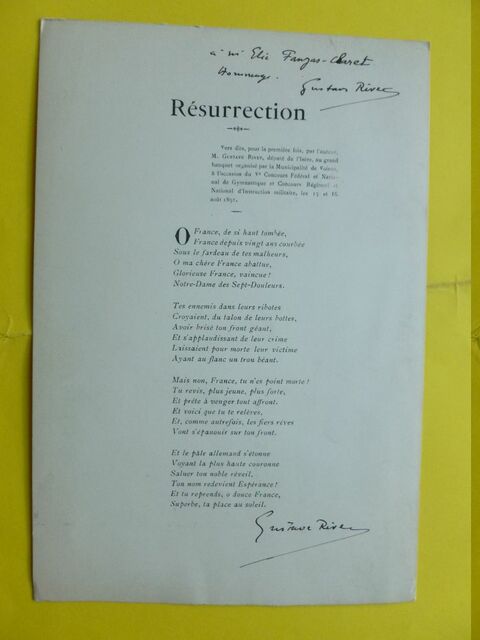 à mr Elie Fanjas-Claret
Hommage.
Gustave Rivet
Résurrection
Vers dits, pour la première fois, par l'auteur,
M. GUSTAVE RIVET, député de l'Isère, au grand
banquet organisé par la Municipalité de Voiron,
à l'occasion du Ve Concours Fédéral et Natio-
nal de Gymnastique et Concours Régional et
National d'Instruction militaire, les 15 et 16
août 1891.
O France, de si haut tombée,
France depuis vingt ans courbée
Sous le fardeau de tes malheurs,
O ma chère France abattue,
Glorieuse France, vaincue!
Notre-Dame des Sept-Douleurs.
Tes ennemis dans leurs ribotes
Croyaient, du talon de leurs bottes,
Avoir brisé ton front géant,
Et s'applaudissant de leur crime
Laissaient pour morte leur victime
Ayant au flanc un trou béant.
Mais non, France, tu n'es point morte!
Tu revis, plus jeune, plus forte,
Et prête à venger tout affront.
Et voici que tu te relèves,
Et, comme autrefois, les fiers rêves
Vont s'épanouir sur ton front.
Et le pâle allemand s'étonne
Voyant la plus haute couronne
Saluer ton noble réveil,
Ton nom redevient Espérance!
Et tu reprends, o douce France,
Superbe, ta place au soleil.
Gustave Rivet